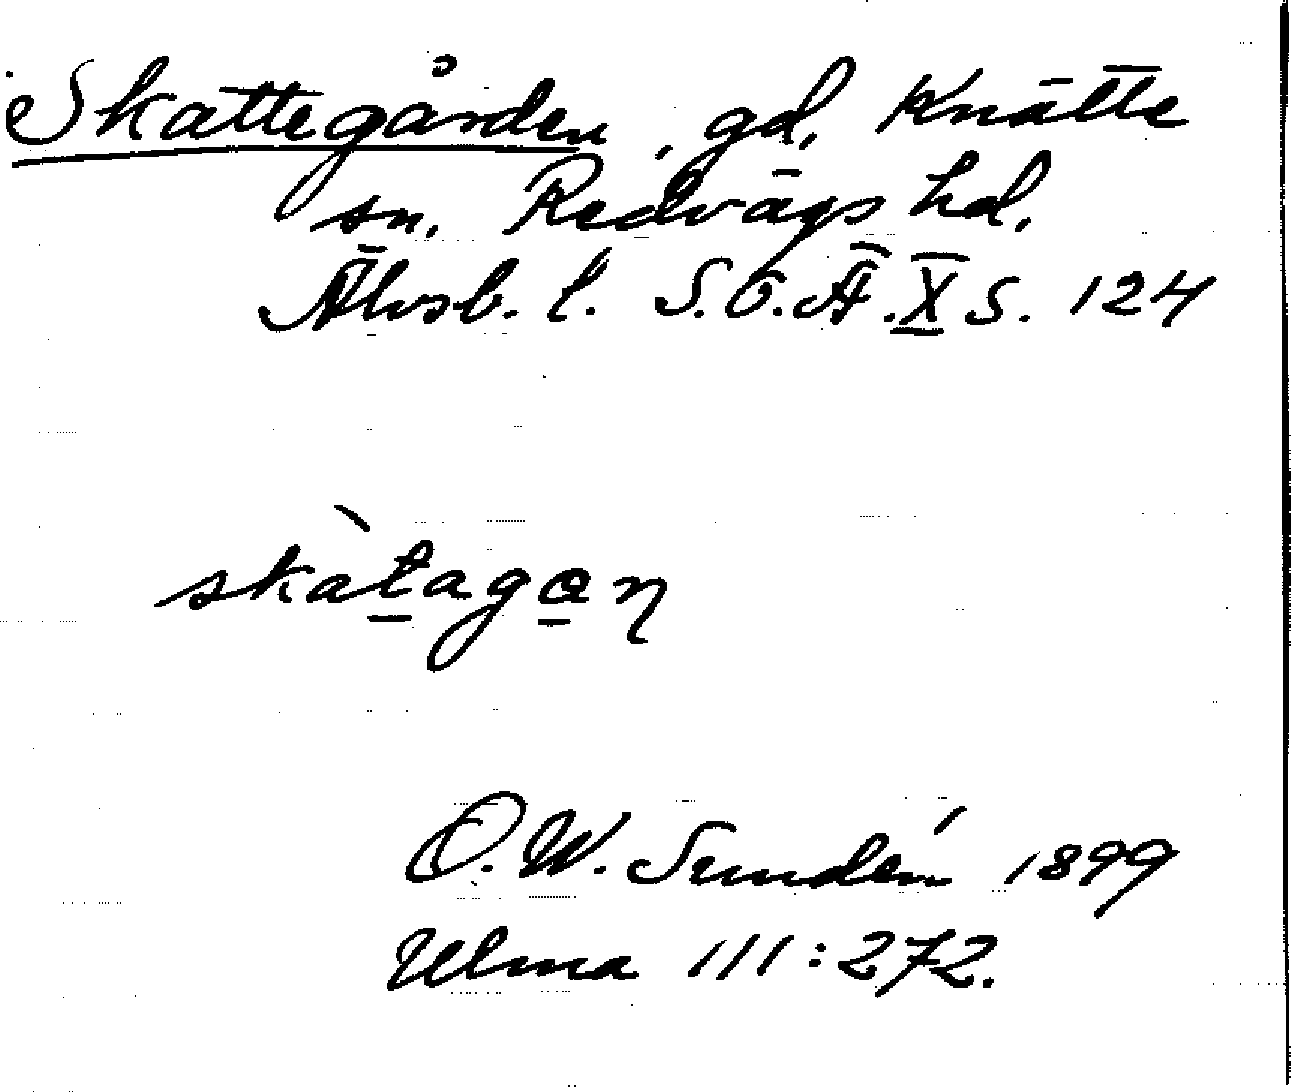 Skattegården, gd, Knätte
sn. Redvägs hd.
Älvsb. l. S.O.Ä. X S. 124
skàtagan
O. W. Sundén 1899
Ulma 111:272.